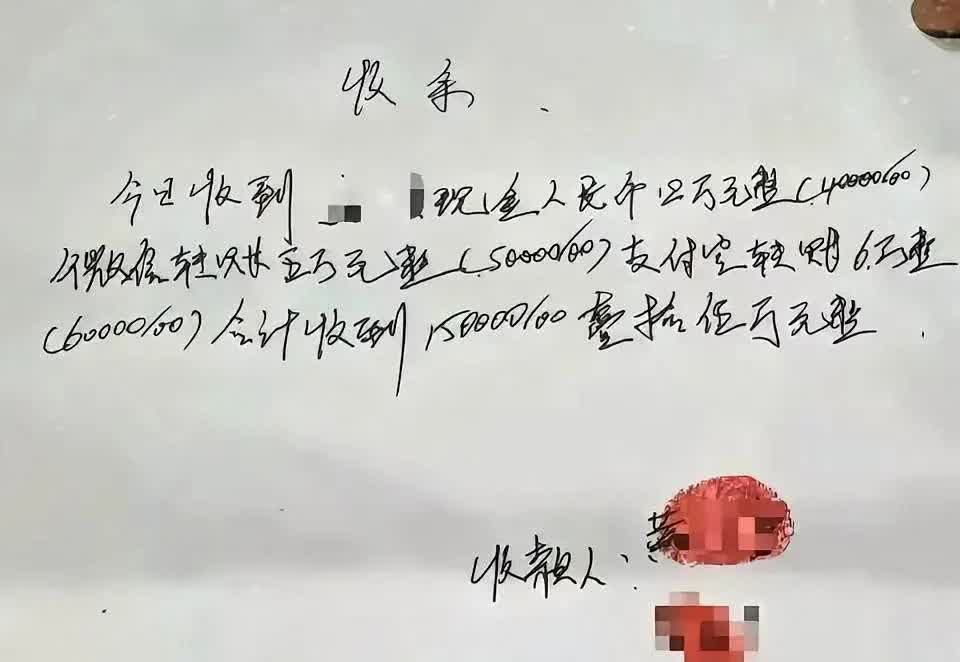 收条.
今日收到现金人民币四万元整(40000/00)
微信转账五万元整(50000/00)支付宝转账6万整
(60000/00)合计收到150000/00壹拾伍万元整.
收款人:黄